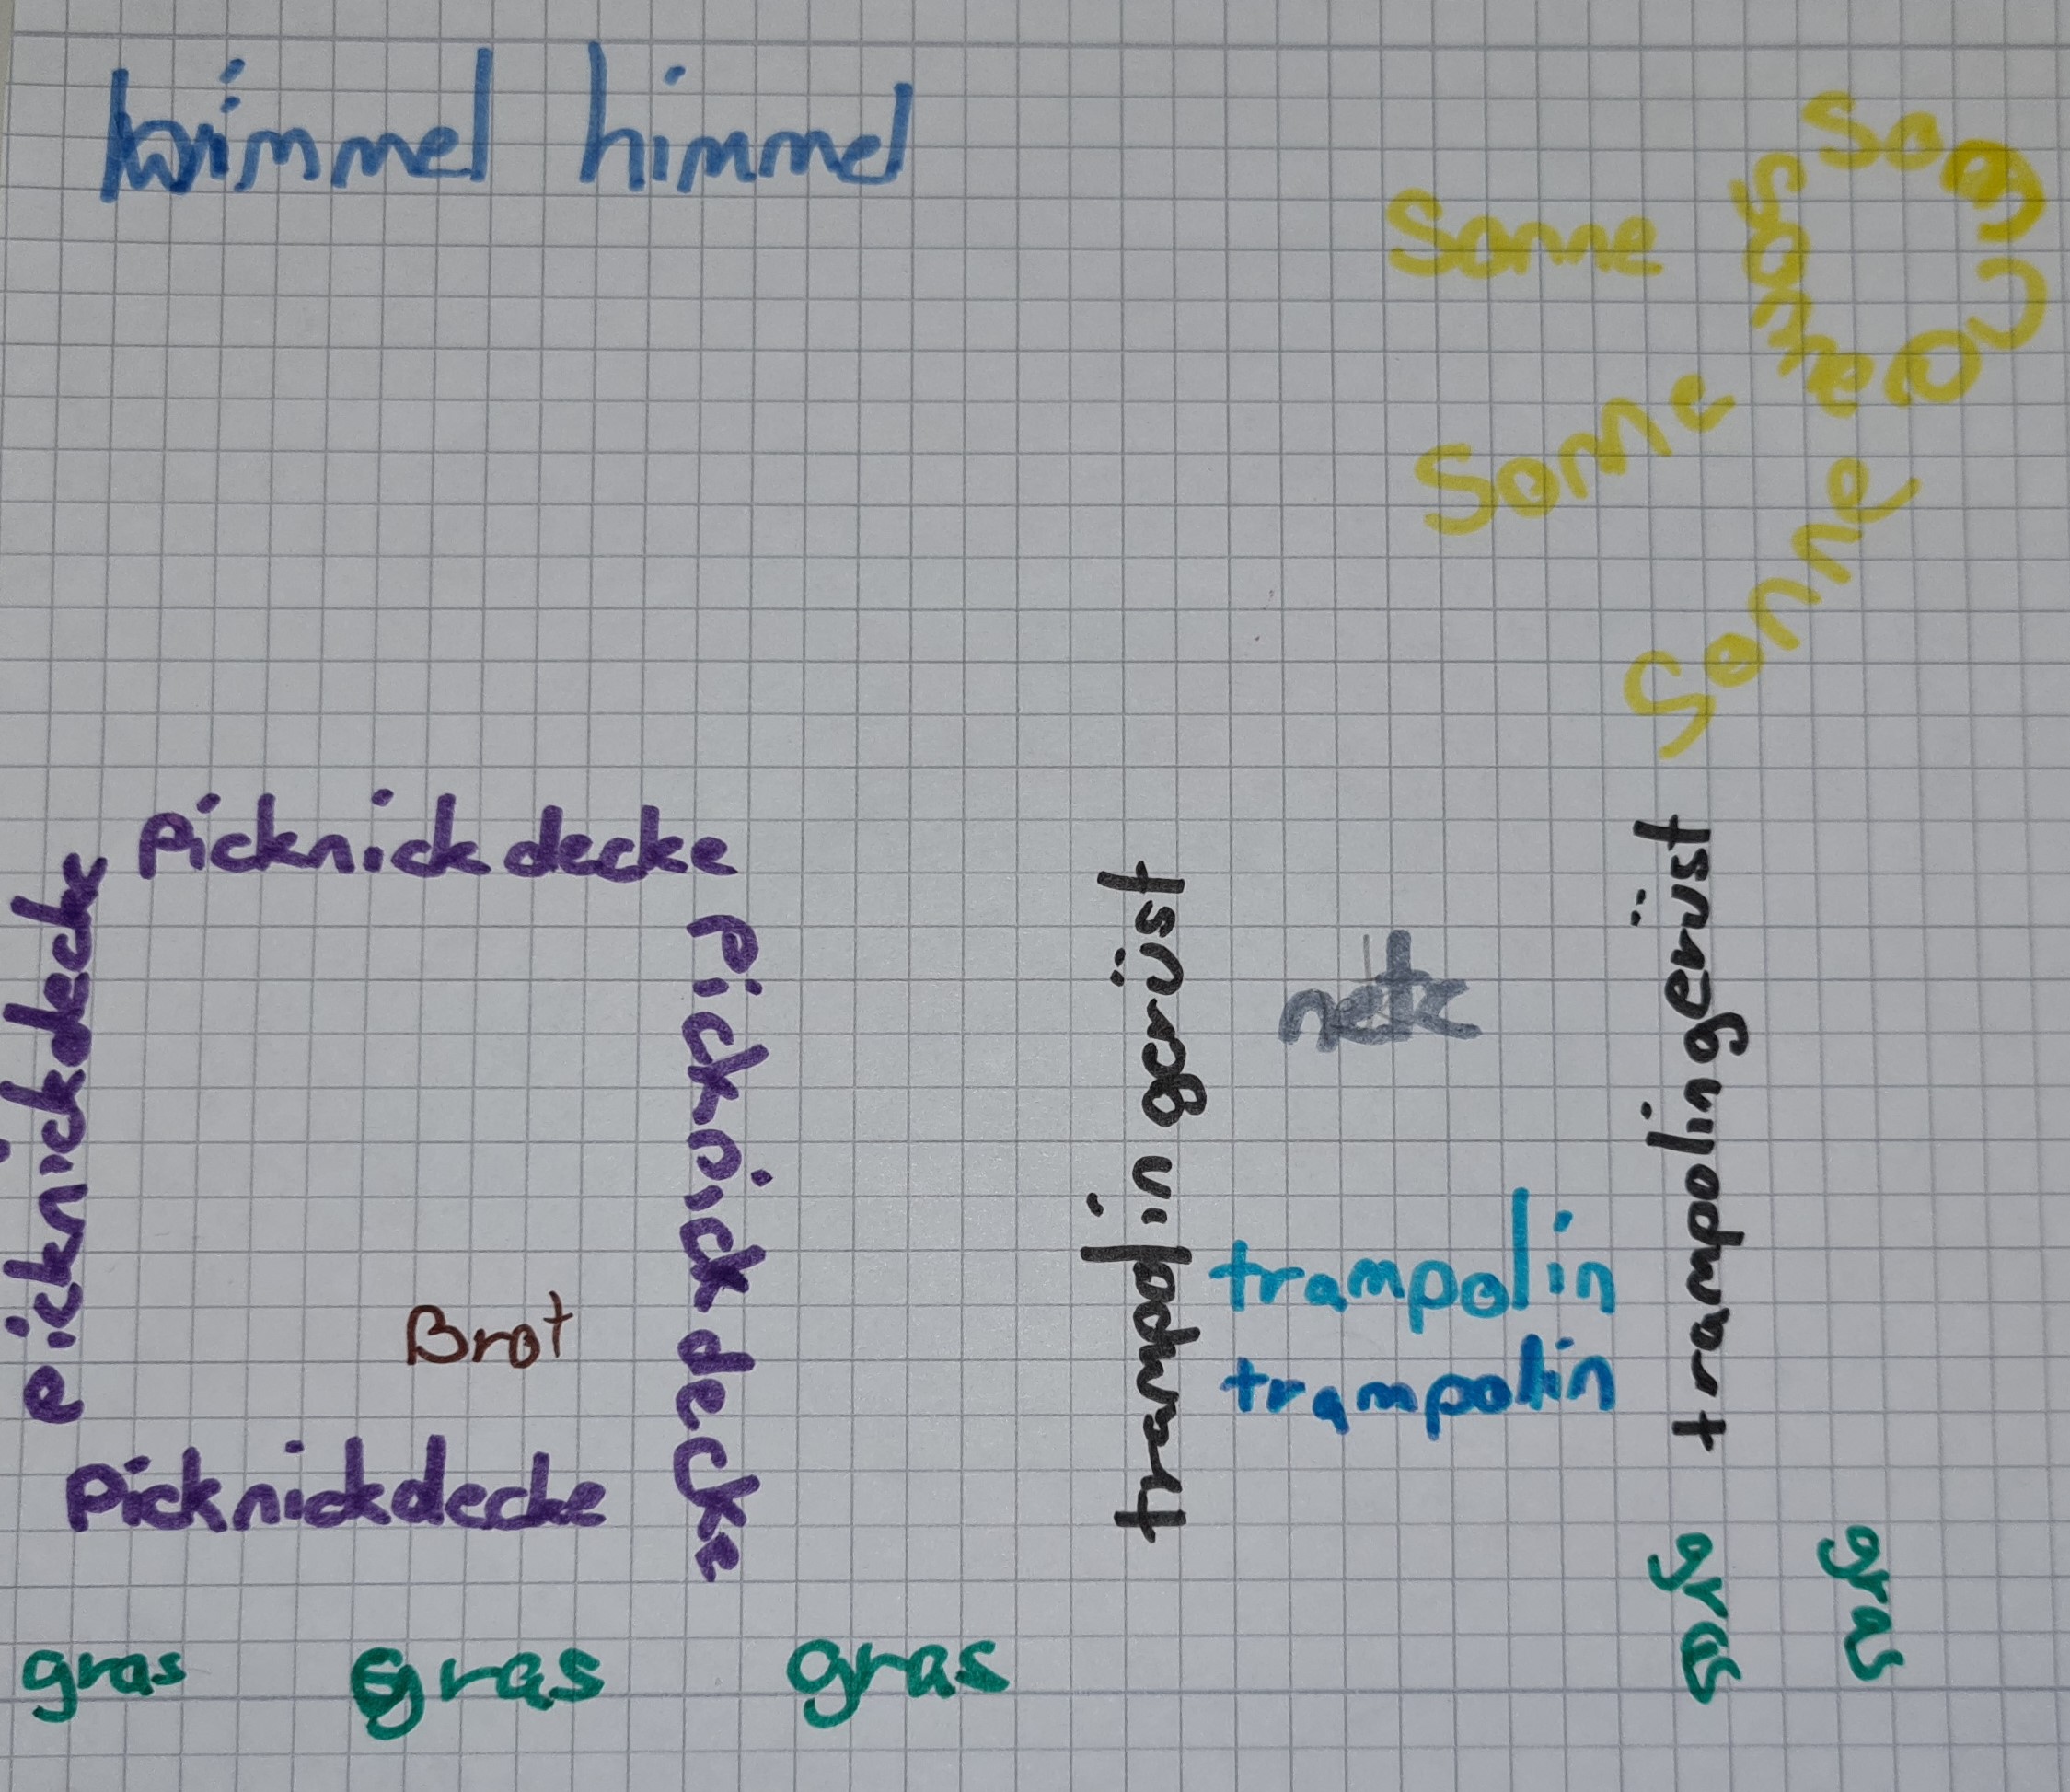 himmel himmel
Sonne
Sonne
Sonne
Sonne
picknickdecke
picknickdecke
picknickdecke
trampolin gerüst
netz
trampolingerüst
trampolin
Brot
trampolin
picknickdecke
gras
gras
gras
gras
gras